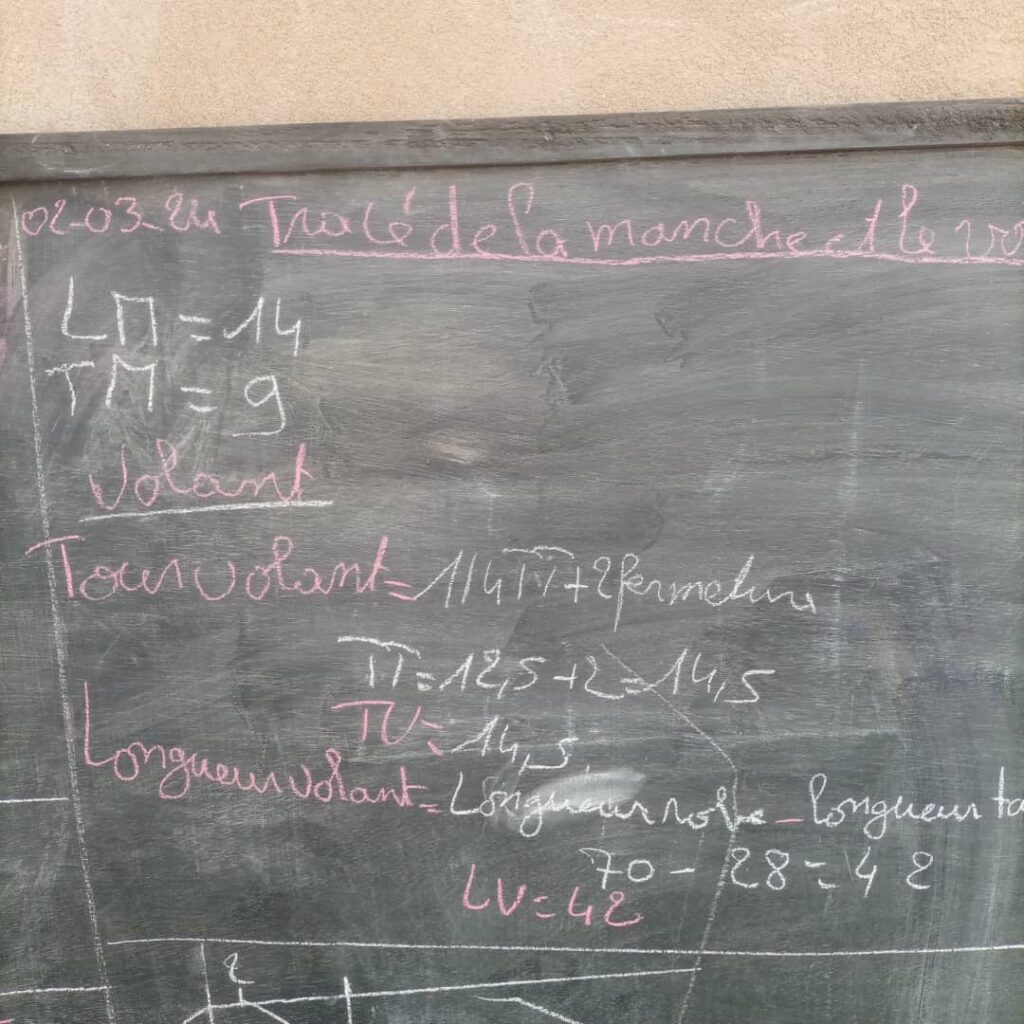 02-03-24 Tracé de la manche et le vo
LM = 14
TM = 9
Volant
Tour volant = 1/4 TT + 2 fermeture
TT = 12,5 + 2 = 14,5
TV = 14,5
Longueur volant = Longueur robe - longueur ta
70 - 28 = 42
LV = 42
2